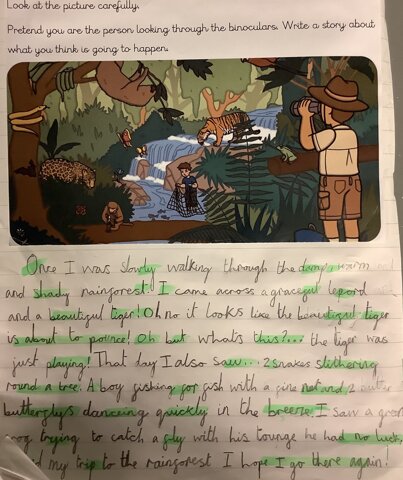 Look at the picture carefully.
Pretend you are the person looking through the binoculars. Write a story about
what you think is going to happen.
Once I was slowly walking through the damp, warm
and shady rainforest! I came across a graceful lepord
and a beautiful tiger! Oh no it looks like the beautiful tiger
is about to pounce! Oh but whats this?... the tiger was
just playing! That day I also saw... 2 snakes slithering
round a tree. A boy fishing for fish with a fine net and 2
butterflys danceing quickly in the breeze. I saw a
trying to catch a fly with his tounge he had no luck,
my trip to the rainforest I hope I go there again!